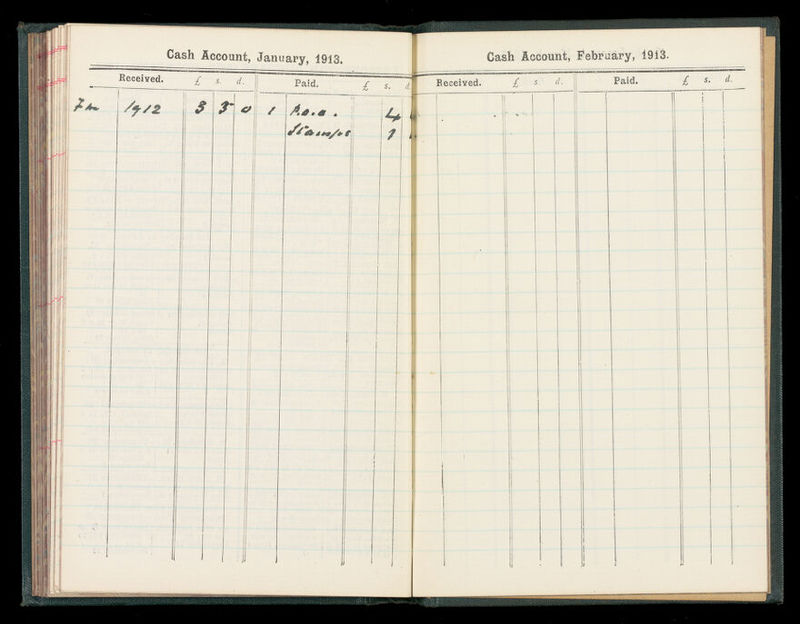 Cash Account, January, 1913.
Received. £ s. d. Paid. £ s. d.
1912 3 5 0 1 P.O.O. 4
Stamps 1
Cash Account, February, 1913.
Received. £ s. d. Paid. £ s. d.